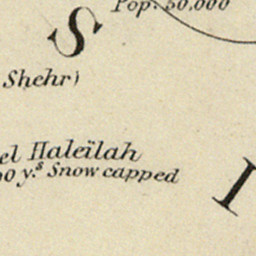 Pop. 50,000
S
Shehr)
el Haleïlah
00 y.s Snow capped
I